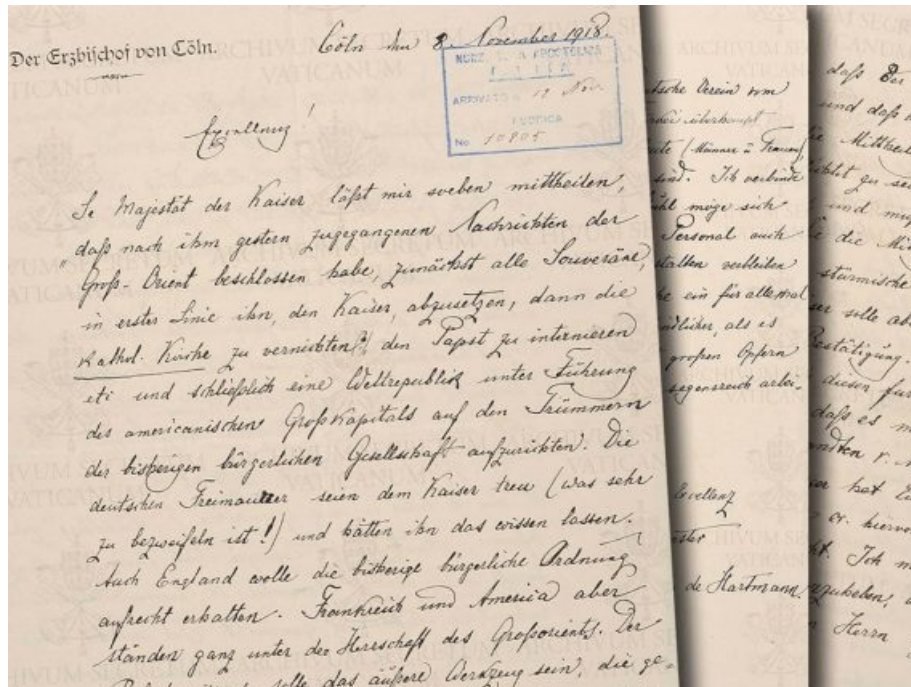 Der Erzbischof von Cöln.
Cöln den 8. November 1918.
ARRIVATO
No 10905
Excellenz!
Se Majestät der Kaiser läßt mir soeben mittheilen,
"daß nach ihm gestern zugegangenen Nachrichten der
Groß-Orient beschlossen habe, zunächst alle Souveräne,
in erster Linie ihn, den Kaiser, abzusetzen, dann die
kathol. Kirche zu vernichten, den Papst zu internieren
etc und schließlich eine Weltrepublik unter Führung
des americanischen Großkapitals auf den Trümmern
der bisherigen bürgerlichen Gesellschaft aufzurichten. Die
deutschen Freimaurer seien dem Kaiser treu (was sehr
zu bezweifeln ist!) und hätten ihn das wissen lassen.
Auch England wolle die bisherige bürgerliche Ordnung
aufrecht erhalten. Frankreich und America aber
ständen ganz unter der Herrschaft des Großorients. Der
solle das äußere Werkzeug sein, die ge-
tsche Verein vom
überhaupt
(Männer u Frauen)
sind. Ich verbinde
möge sich
Personal auch
verbleiben
ein für allemal
als es
großen Opfern
segensreich arbei-
Excellenz
de Hartmann
daß der
und daß
Mittheil
zu se
und
die Mit
stürmische
solle ab
Bestätigung.
diesen
daß es m
hat
hiervo
Ich m
Herrn